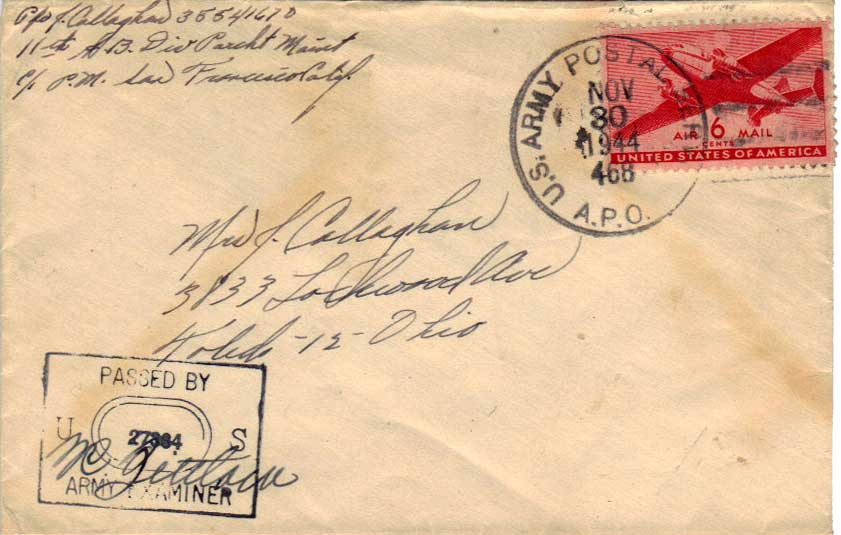 J. Callaghan 35541670
11th A.B. Div Parcht Maint
c/o P.M. San Francisco Calif.
U.S. ARMY POSTAL SER
NOV
30
1944
468
A.P.O.
AIR 6 MAIL
CENTS
UNITED STATES OF AMERICA
Mrs J. Callaghan
3833 Lockwood Ave
Toledo -12- Ohio
PASSED BY
U S
ARMY EXAMINER